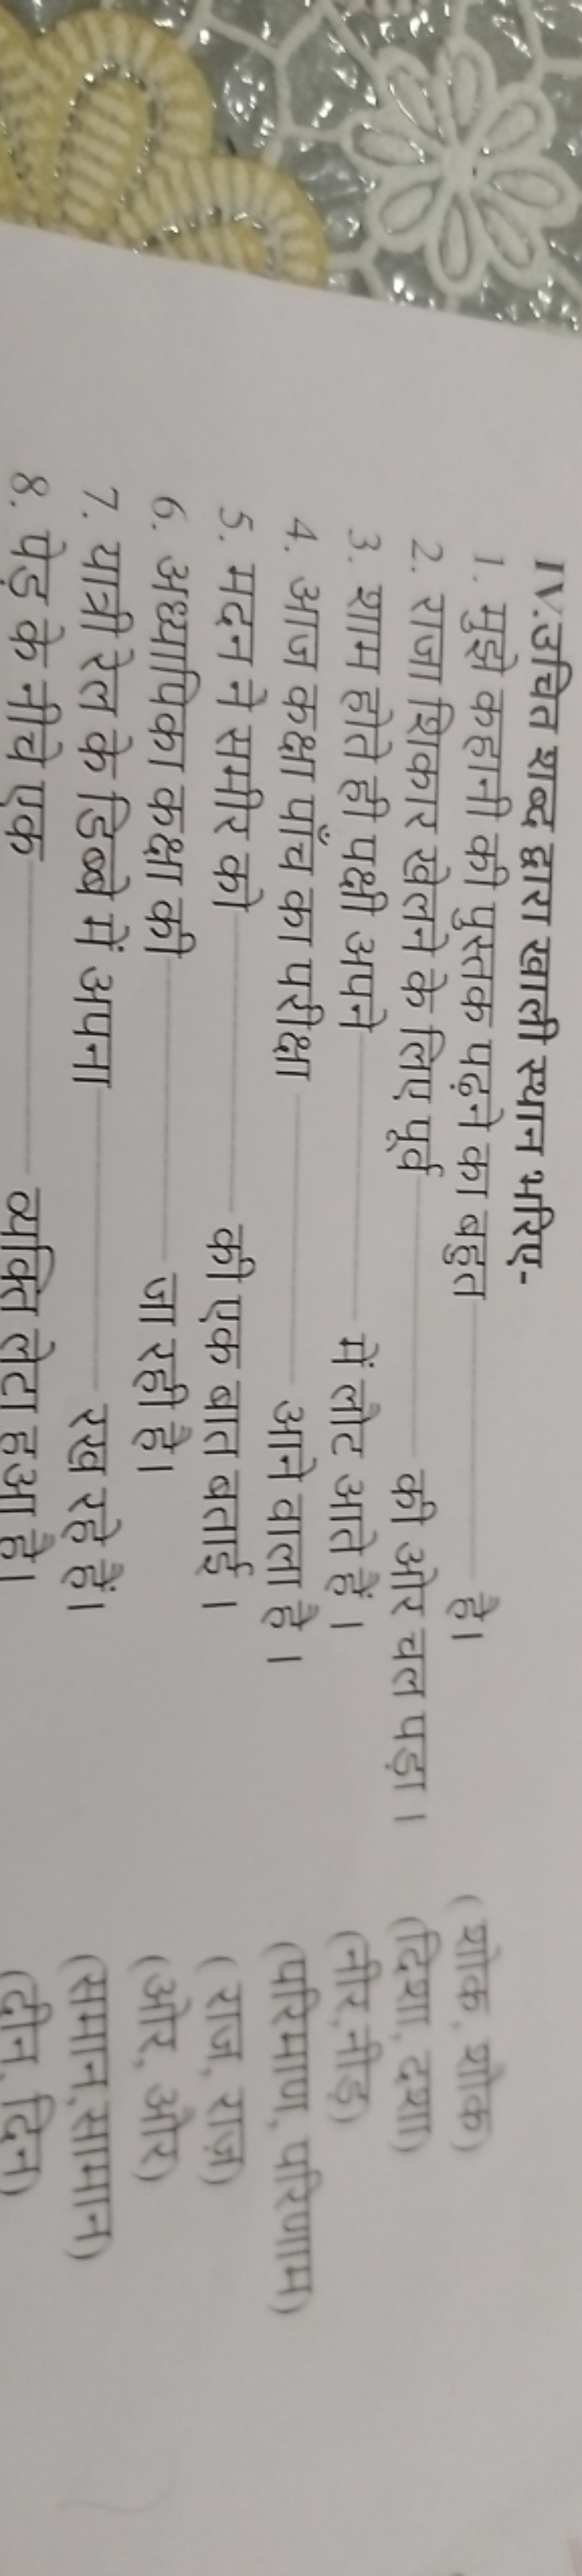 IV.उचित शब्द द्वारा खाली स्थान भरिए-
1. मुझे कहानी की पुस्तक पढ़ने का बहुत है। (शोक, शौक)
2. राजा शिकार खेलने के लिए पूर्व की ओर चल पड़ा । (दिशा, दशा)
3. शाम होते ही पक्षी अपने में लौट आते हैं । (नीर,नीड़)
4. आज कक्षा पाँच का परीक्षा आने वाला है । (परिमाण, परिणाम)
5. मदन ने समीर को की एक बात बताई । ( राज, राज़)
6. अध्यापिका कक्षा की जा रही है। (ओर, और)
7. यात्री रेल के डिब्बे में अपना रख रहे हैं। (समान,सामान)
8. पेड़ के नीचे एक व्यक्ति लेटा हुआ है। (दीन, दिन)